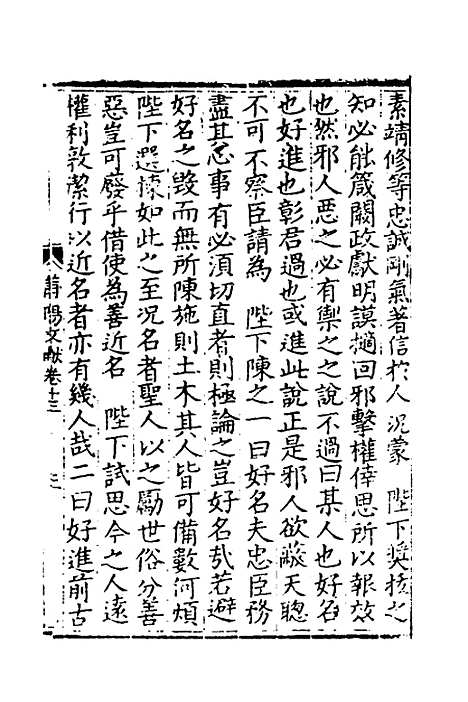 素靖修等忠誠剛氣著信扵人况蒙　陛下奬擢之
知必能箴闕政獻明謨摛回邪擊權倖思所以報效
也然邪人惡之必有禦之之說不過曰某人也好名
也好進也彰君過也或進此說正是邪人欲蔽天聰
不可不察臣請為　陛下陳之一曰好名夫忠臣務
盡其忠事有必須切直者則極論之豈好名㢤若避
好名之毀而無所陳施則土木其人皆可備數何煩
陛下選揀如此之至况名者聖人以之勵世俗分善
惡豈可廢乎借使為善近名　陛下試思今之人遠
權利敦潔行以近名者亦有幾人㦲二曰好進前古
莆陽文獻卷十三　三